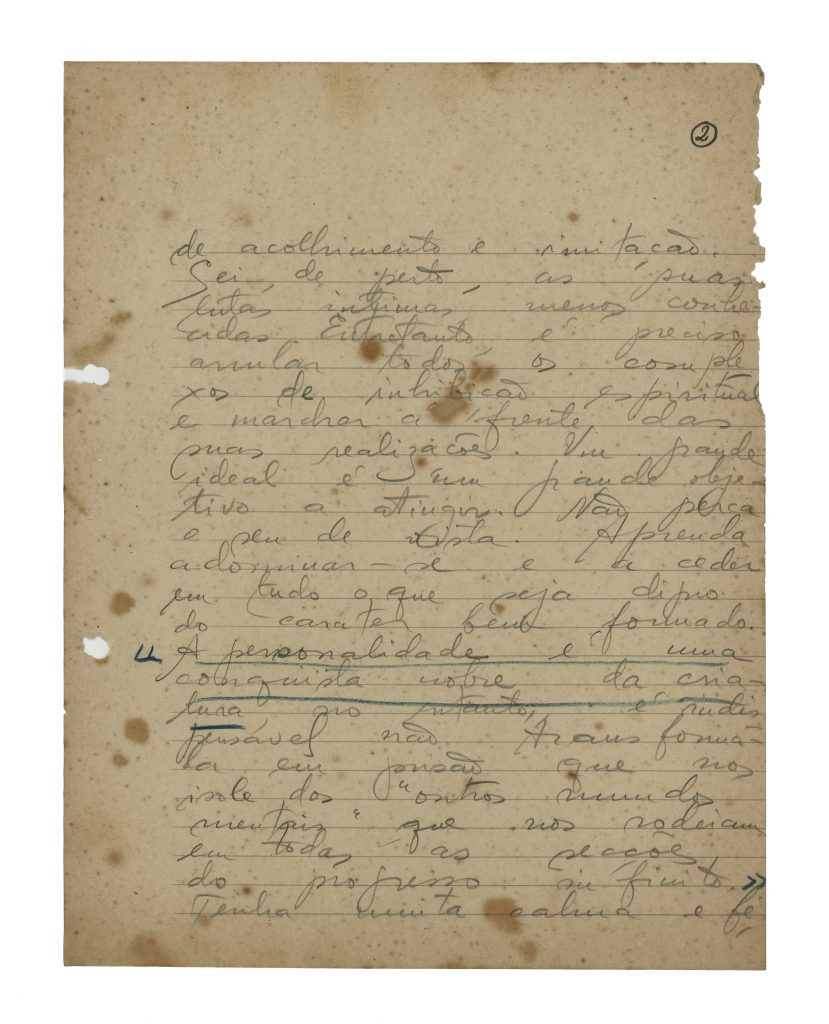 2
de acolhimento e imitação.
Sei, de perto, as suas
lutas íntimas, menos conhe-
cidas. Entretanto, é preciso
anular todos os comple
xos de inhibição espiritual
e marchar á frente das
suas realizações. Um grande
ideal é um grande obje-
tivo a atingir. Não perca
o seu de vista. Aprenda
a dominar-se e a ceder
em tudo o que seja digno
do carater bem formado.
"A personalidade é uma
conquista nobre da cria-
tura, no entanto, é indis
pensável não transformá-
la em prisão que nos
isole dos "outros mundos
mentais" que nos rodeiam
em todas as secções
do progresso infinito."
Tenha muita calma e fé,